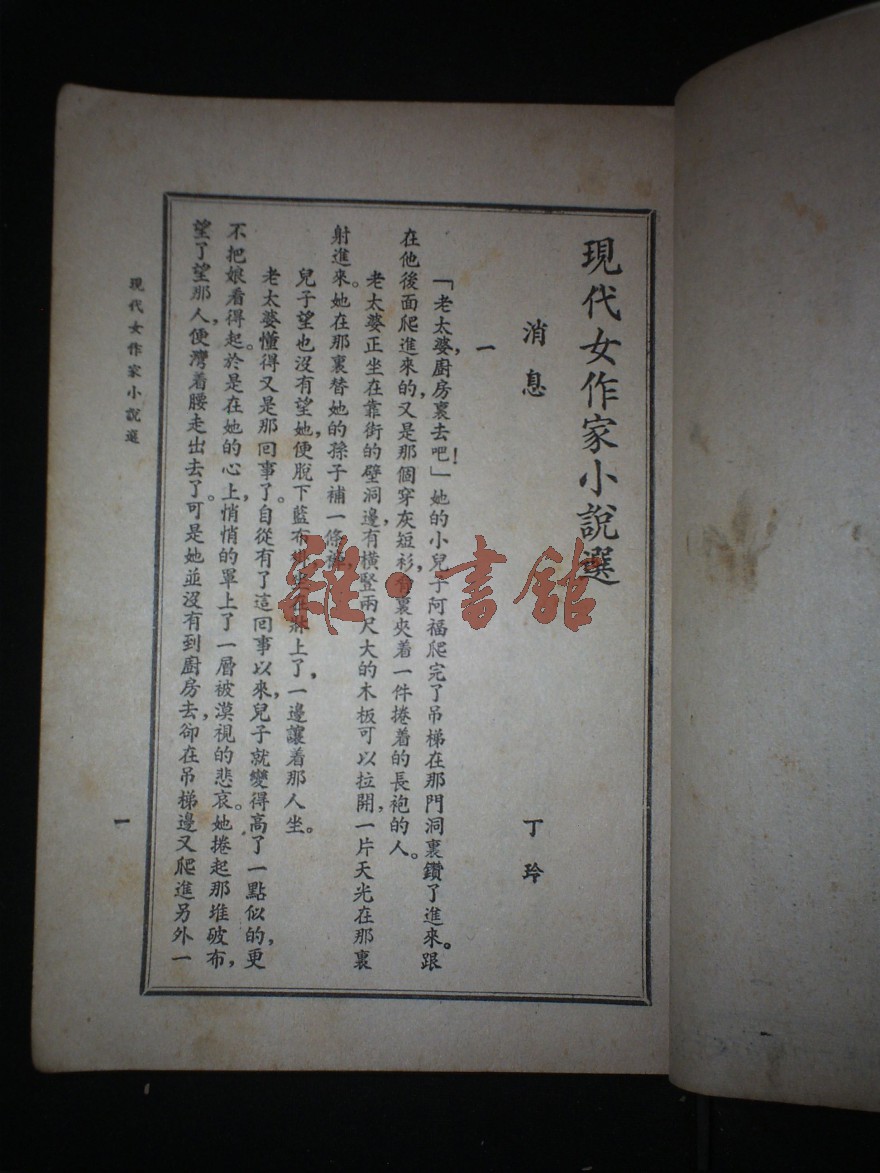 現代女作家小說選
消息
丁玲
一
「老太婆，廚房裏去吧！」她的小兒子阿福爬完了吊梯在那門洞裏鑽了進來。跟
在他後面爬進來的，又是那個穿灰短衫，裏夾着一件捲着的長袍的人。
老太婆正坐在靠街的壁洞邊，有橫豎兩尺大的木板可以拉開，一片天光在那裏
射進來。她在那裏替她的孫子補一條褲，
兒子望也沒有望她，便脫下藍布上了，一邊讓着那人坐。
老太婆懂得又是那回事了。自從有了這回事以來，兒子就變得高了一點似的，更
不把娘看得起。於是在她的心上，悄悄的罩上了一層被漠視的悲哀。她捲起那堆破布，
望了望那人，便灣着腰走出去了。可是她並沒有到廚房去，卻在吊梯邊又爬進另外一
現代女作家小說選
一
雜·書館